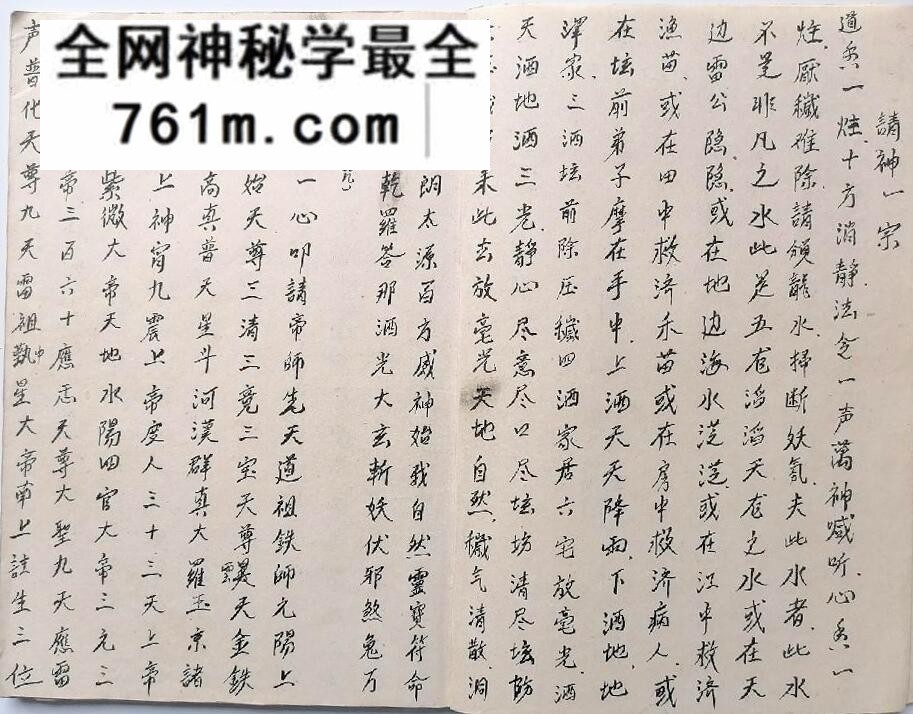 全网神秘学最全
761m.com
請神一宗
道香一炷十方消静法令一声萬神咸听心香一
炷厭穢难除請領龍水掃断妖氛夫此水者此水
不是非凡之水此是五
滔滔天
之水或在天
边雷公隐隐或在地边海水茫茫或在江中救济
渔苗或在田中救济禾苗或在房中救济病人或
在坛前弟子摩在手中上洒天天降雨下洒地地
澤泉三洒坛前除压穢四洒家居六宅放毫光洒
天洒地洒三光静心尽意尽口尽坛坊清尽坛
来此去放毫光天地自然穢气清散洞
朗太源百方威神始我自然靈寳符命
乾羅答那洒光大玄斬妖伏邪煞兔万
一心叩請帝師先天道祖鉄師元陽上
始天尊三清三竟三宝天尊昊天金鉄
雲
高真普天星斗河漢群真大羅玉京諸
上神宵九震上帝度人三十三天上帝
紫微大帝天地水陽四官大帝三元三
帝三百六十應
天尊大聖九天應雷
声普化天尊九天雷祖
星大帝南上註生三位